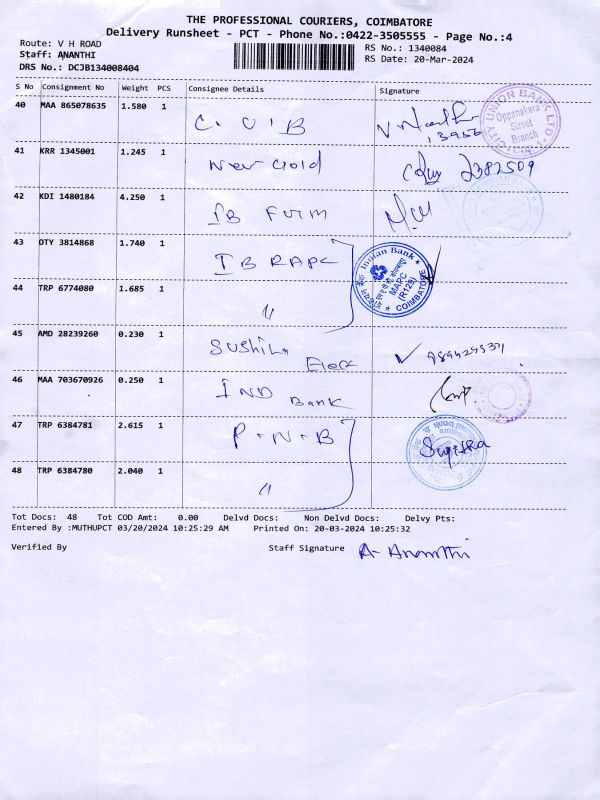 THE PROFESSIONAL COURIERS, COIMBATORE
Delivery Runsheet - PCT - Phone No.:0422-3505555 - Page No.:4
Route: V H ROAD
RS No.: 1340084
Staff: ANANTHI
RS Date: 20-Mar-2024
DRS No.: DCJB134008404
S No Consignment No Weight PCS Consignee Details Signature
40 MAA 865078635 1.580 1 C. U I B
13956
CITY UNION BANK LTD.
Oppanakara Street Branch
41 KRR 1345001 1.245 1 New Gold
2382509
42 KDI 1480184 4.250 1 IB Furm
43 OTY 3814868 1.740 1 IB RAPC
Indian Bank
MAPC
(R129)
COIMBATORE
44 TRP 6774080 1.685 1 "
45 AMD 28239260 0.230 1 Sushila Elec
46 MAA 703670926 0.250 1 IND Bank
47 TRP 6384781 2.615 1 P.N.B
Sujitha
48 TRP 6384780 2.040 1 "
Tot Docs: 48 Tot COD Amt: 0.00 Delvd Docs: Non Delvd Docs: Delvy Pts:
Entered By :MUTHUPCT 03/20/2024 10:25:29 AM Printed On: 20-03-2024 10:25:32
Verified By Staff Signature A- Ananthi